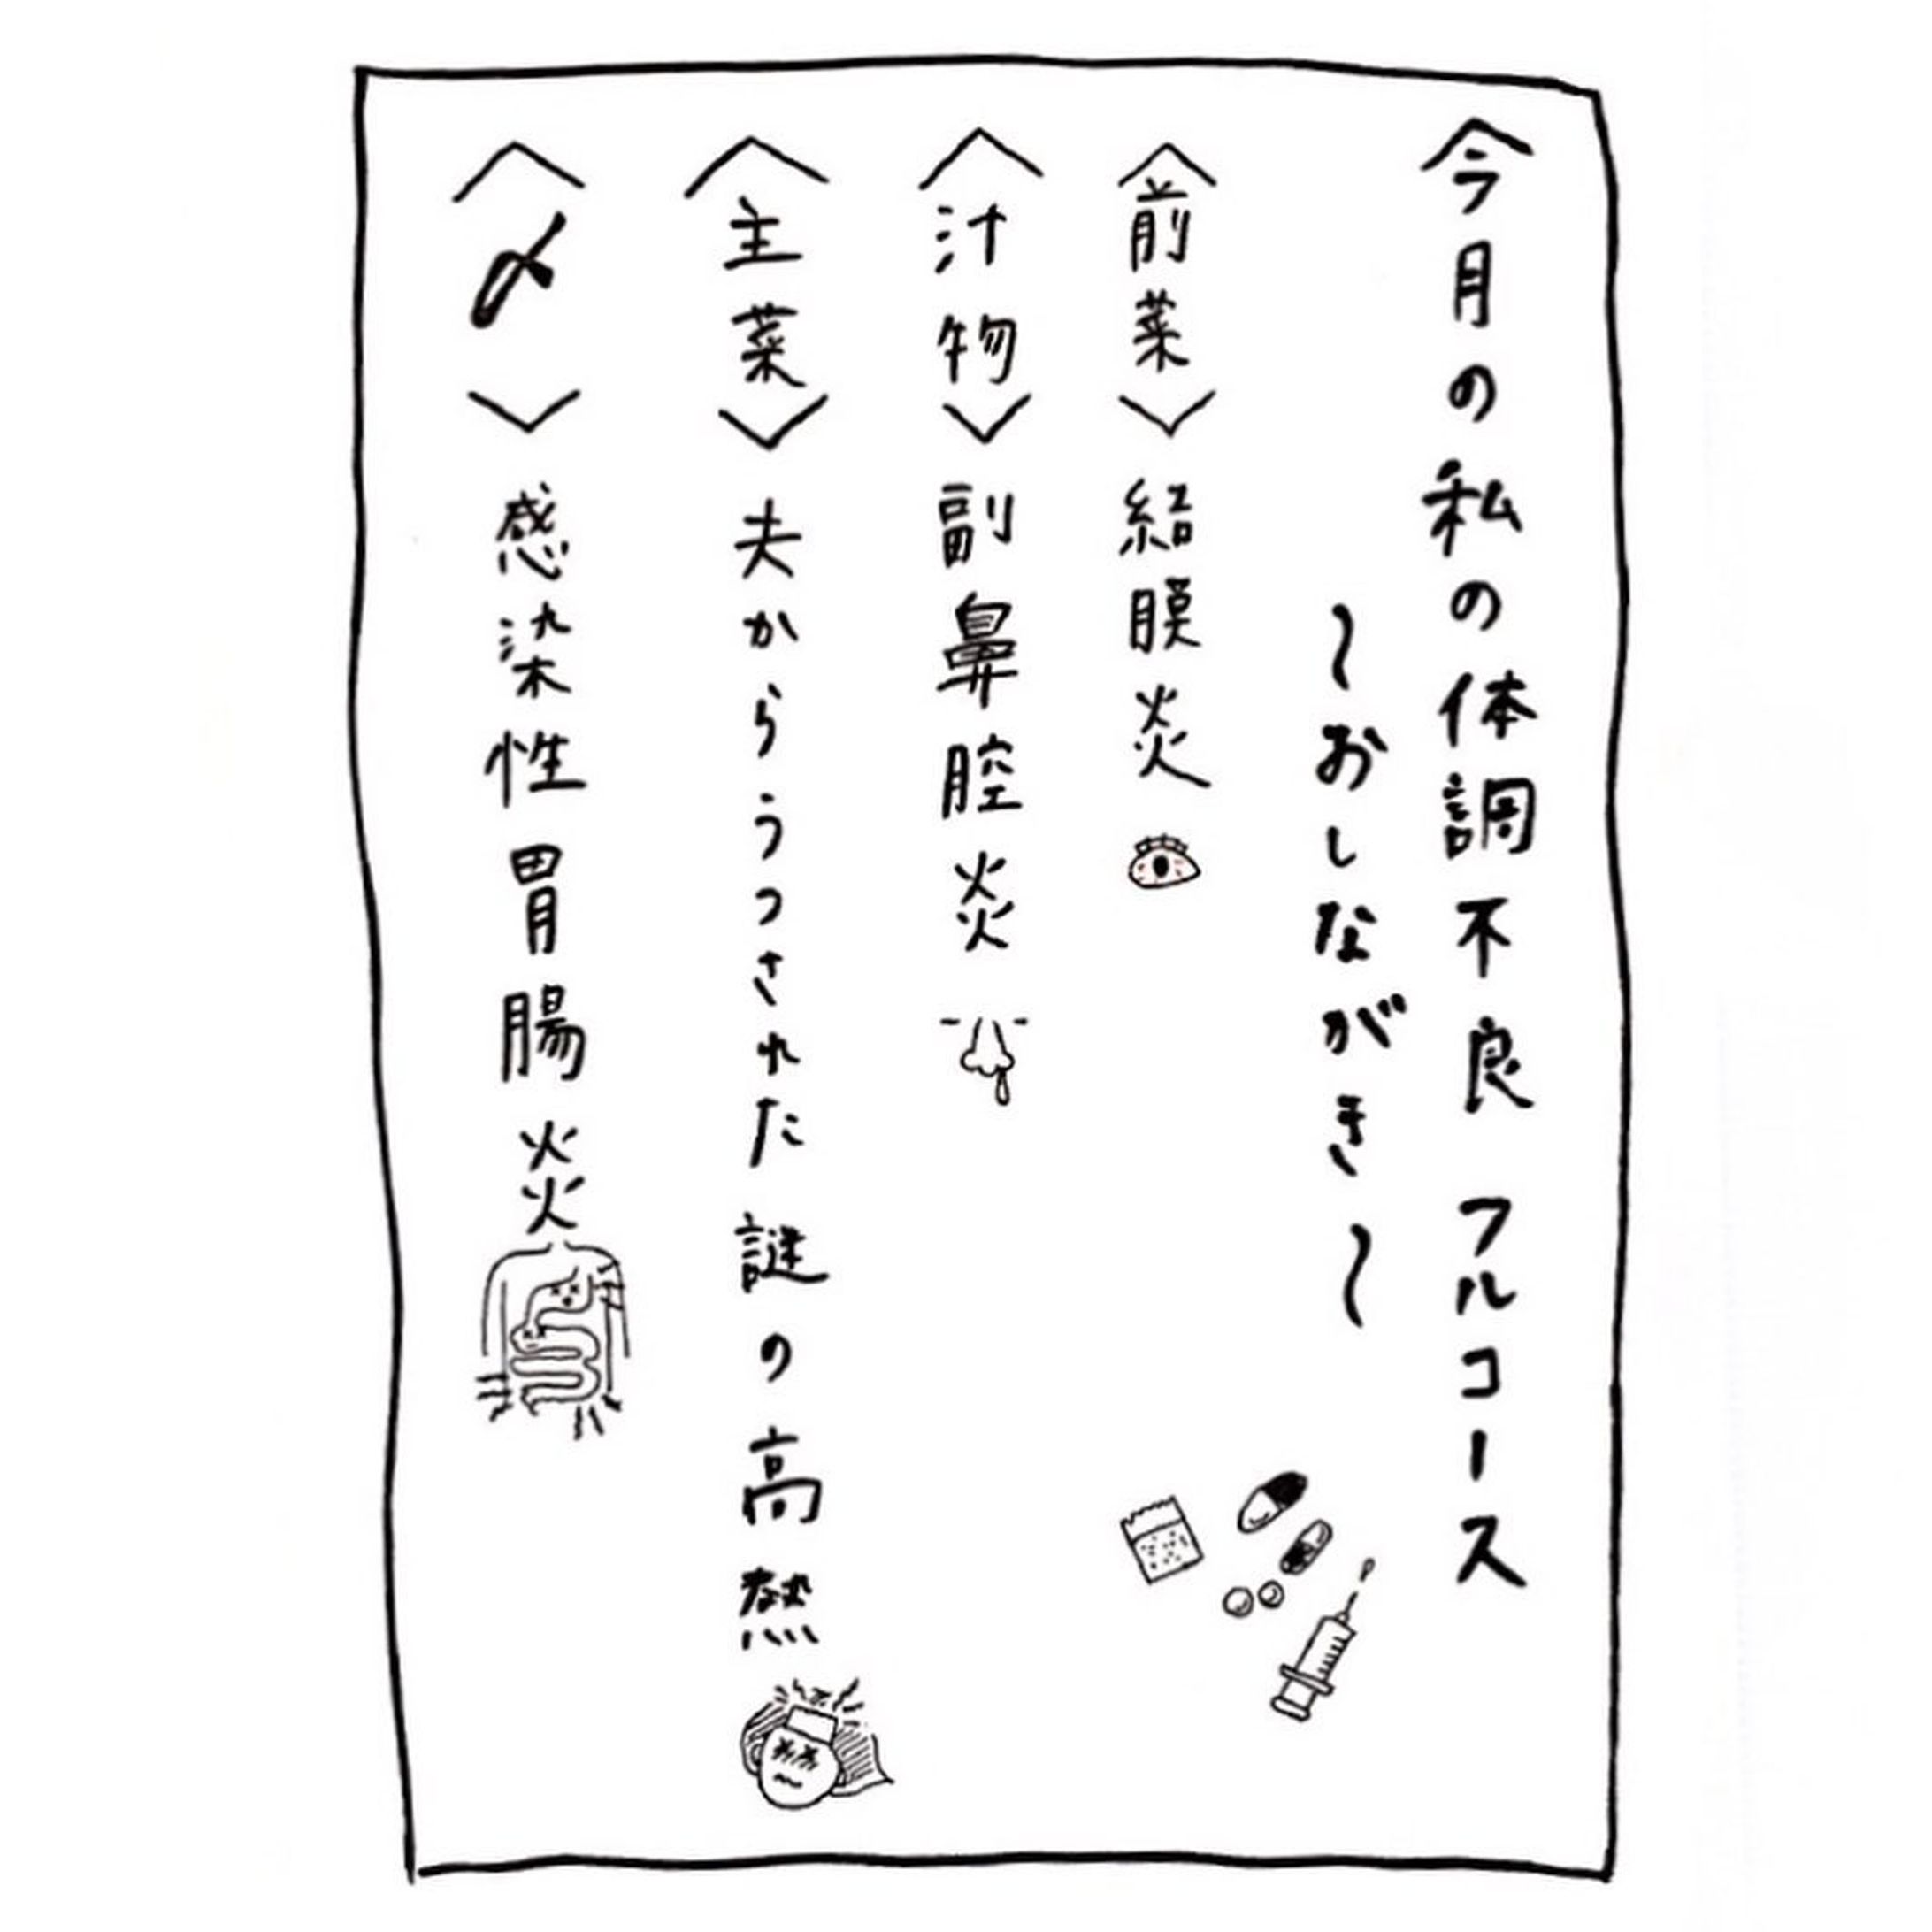 今月の私の体調不良 フルコース
〜おしながき〜
〈前菜〉結膜炎
〈汁物〉副鼻腔炎
〈主菜〉夫からうつされた謎の高熱
〈〆〉感染性胃腸炎